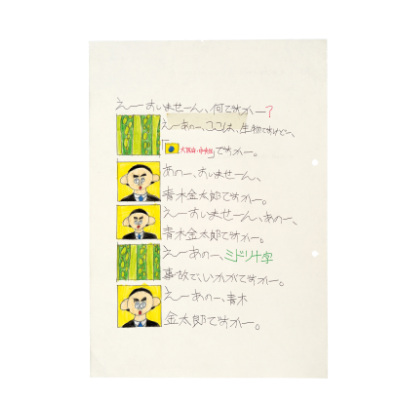 えーおしませーん、何ですかー?
えーあのー、ここは、生物ですけどー、
「 」ですかー。
あのー、おしませーん、
青木金太郎ですかー。
えーおしませーん、あのー、
青木金太郎ですかー。
えーあのー、ミドリ十字
事故で、いかがですかー。
えーあのー、青木
金太郎ですかー。